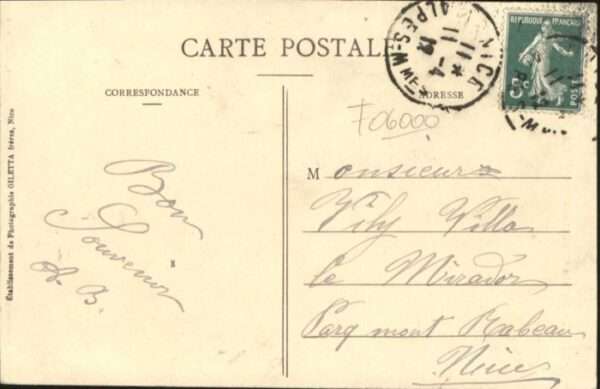 CARTE POSTALE
CORRESPONDANCE
ADRESSE
F06000
Monsieur
Vily Villa
le Mirador
Parq mont Rabeau
Nice
Bon
Souvenir
A. B.
Établissement de Photographie GILETTA frères, Nice
NICE
ALPES-M
11-4
11
REPUBLIQUE FRANÇAISE
5c
POST